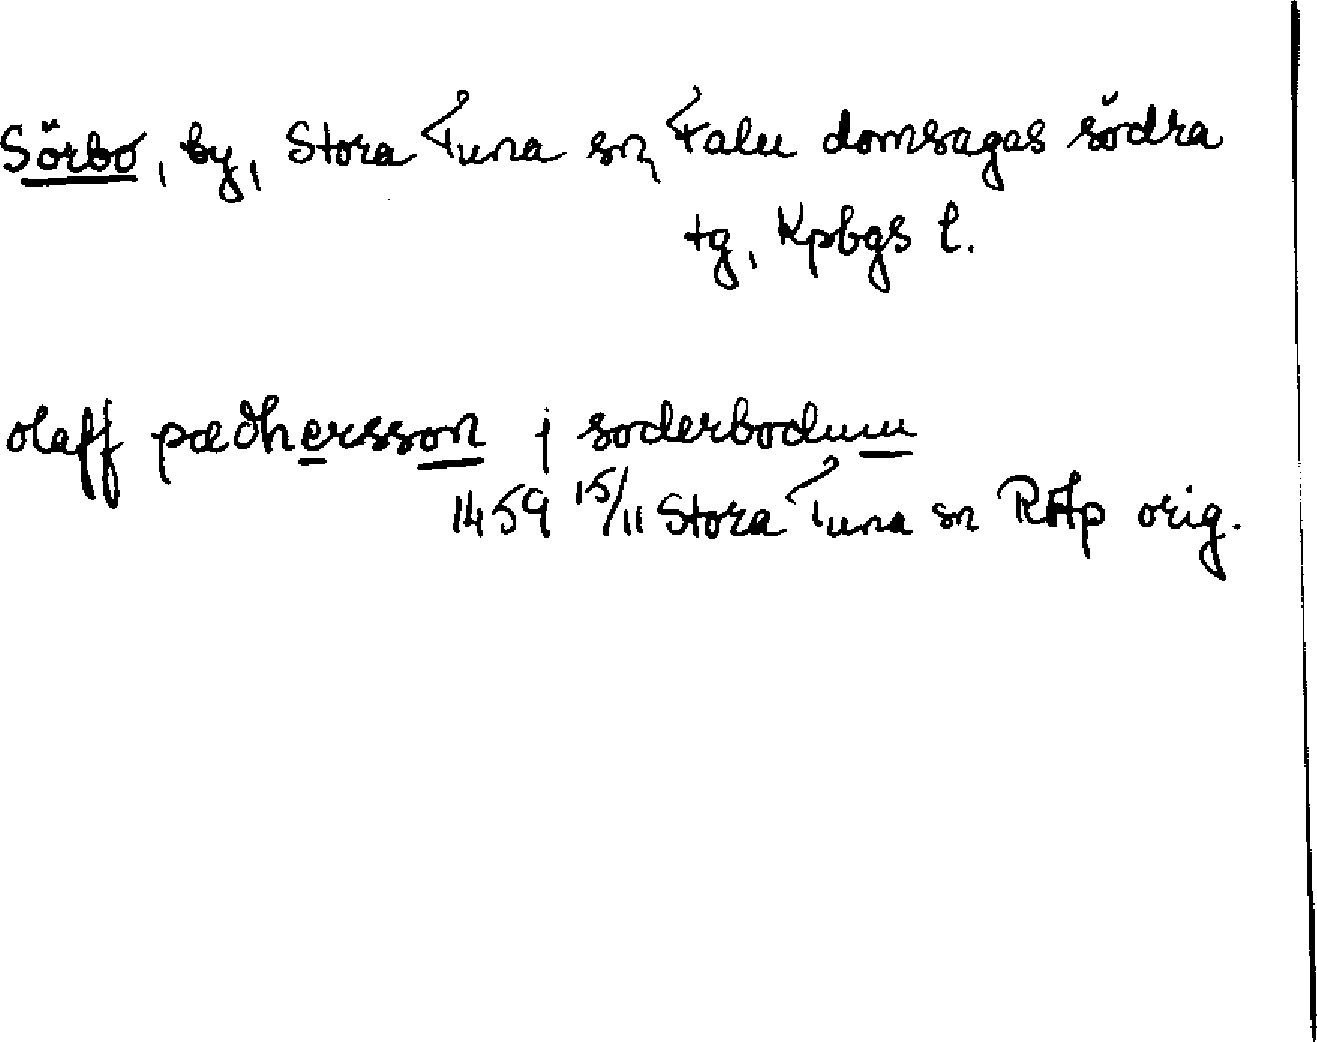 Sörbo, by, Stora Tuna sn, Falu domsagas södra
tg, Kpbgs l.
olaff pædhersson j soderbodum
1459 15/11 Stora Tuna sn RAp orig.